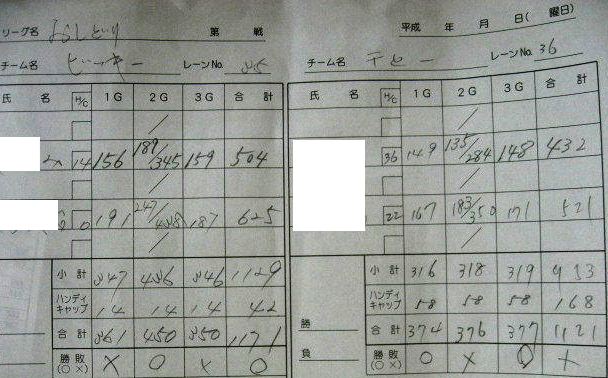 リーグ名 おしどり 第 戦
チーム名 ビッキー レーンNo. 35
氏 名 H/C 1G 2G 3G 合 計
14 156 189/345 159 504
0 191 247/438 187 625
小 計 347 436 346 1129
ハンディキャップ 14 14 14 42
合 計 361 450 350 1171
勝 敗 (○ ×) × ○ × ○
平成 年 月 日( 曜日)
チーム名 レーンNo. 36
氏 名 H/C 1G 2G 3G 合 計
36 149 135/284 148 432
22 167 183/350 171 521
小 計 316 318 319 953
ハンディキャップ 58 58 58 168
勝 合 計 374 376 377 1121
負 勝 敗 (○ ×) ○ × ○ ×